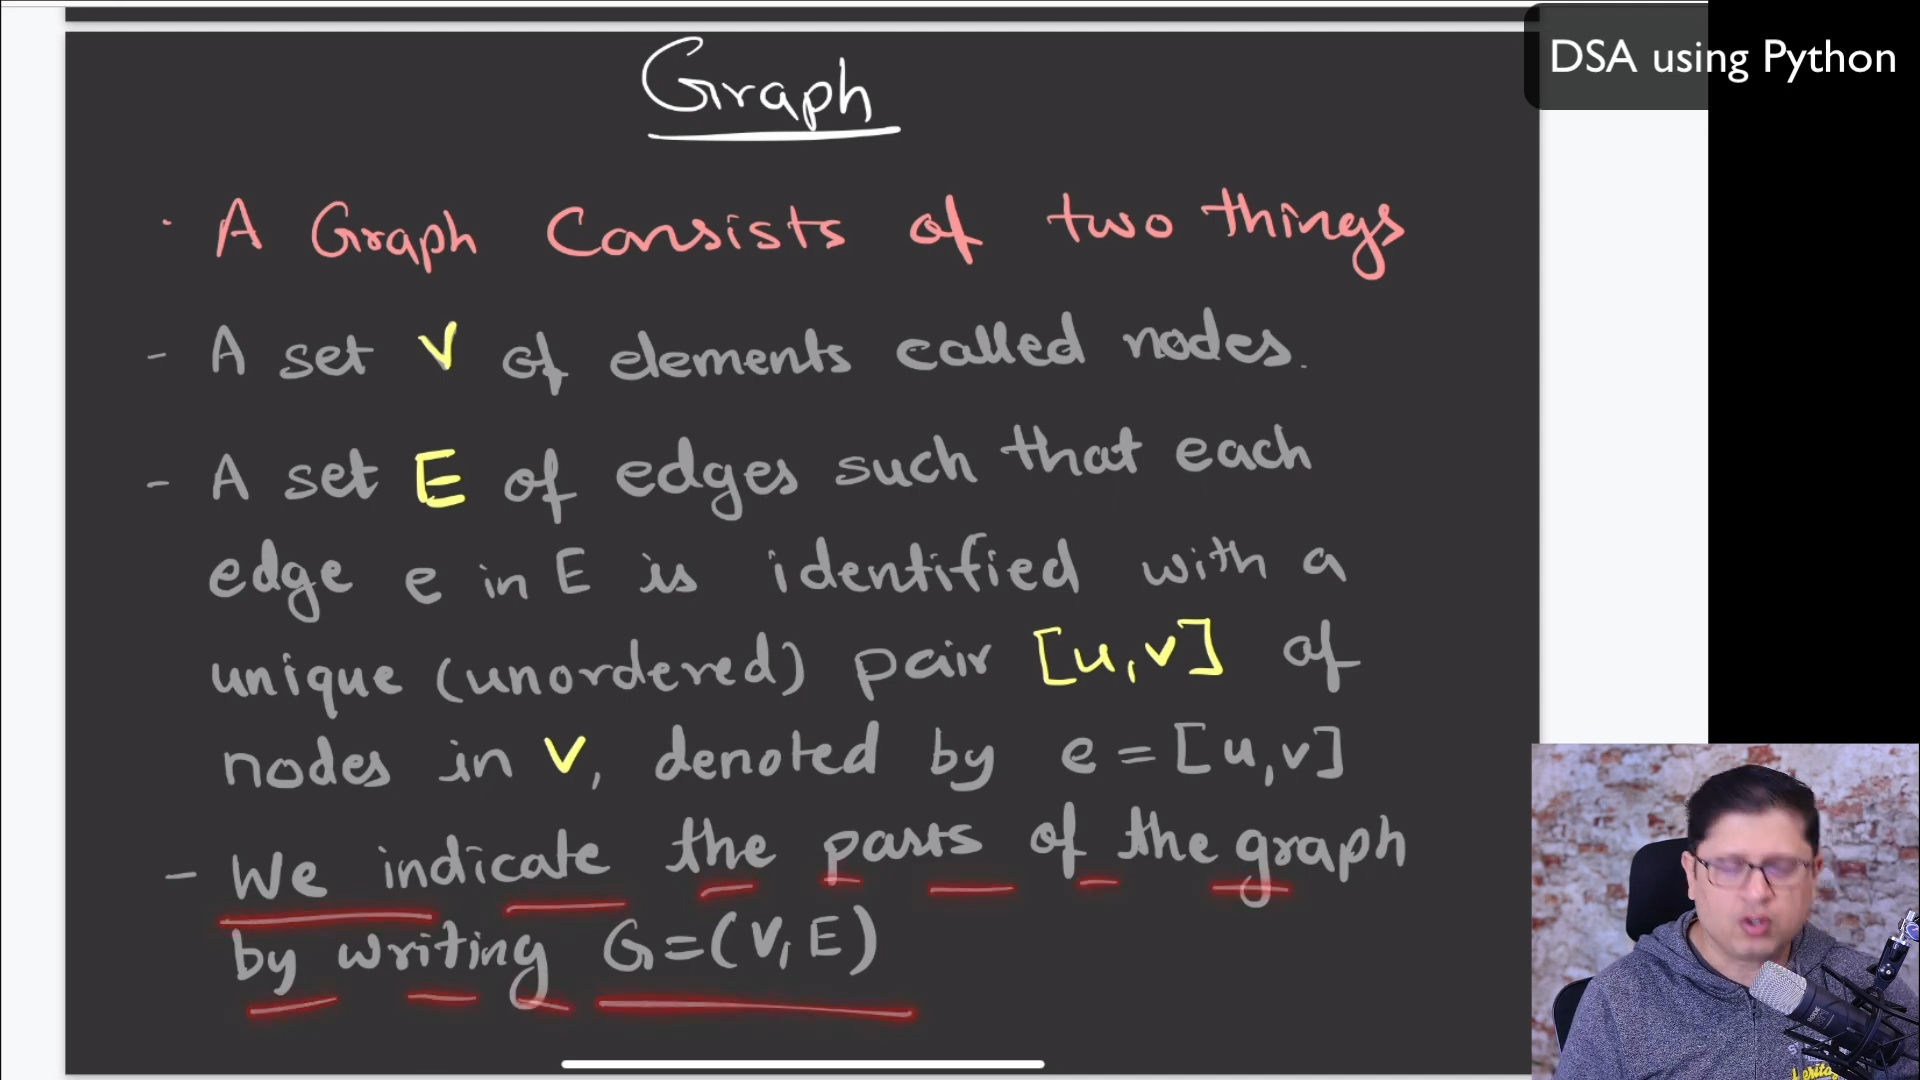 DSA using Python
Graph
· A Graph Consists of two things
- A set V of elements called nodes.
- A set E of edges such that each
edge e in E is identified with a
unique (unordered) pair [u,v] of
nodes in V, denoted by e = [u,v]
- We indicate the parts of the graph
by writing G=(V,E)